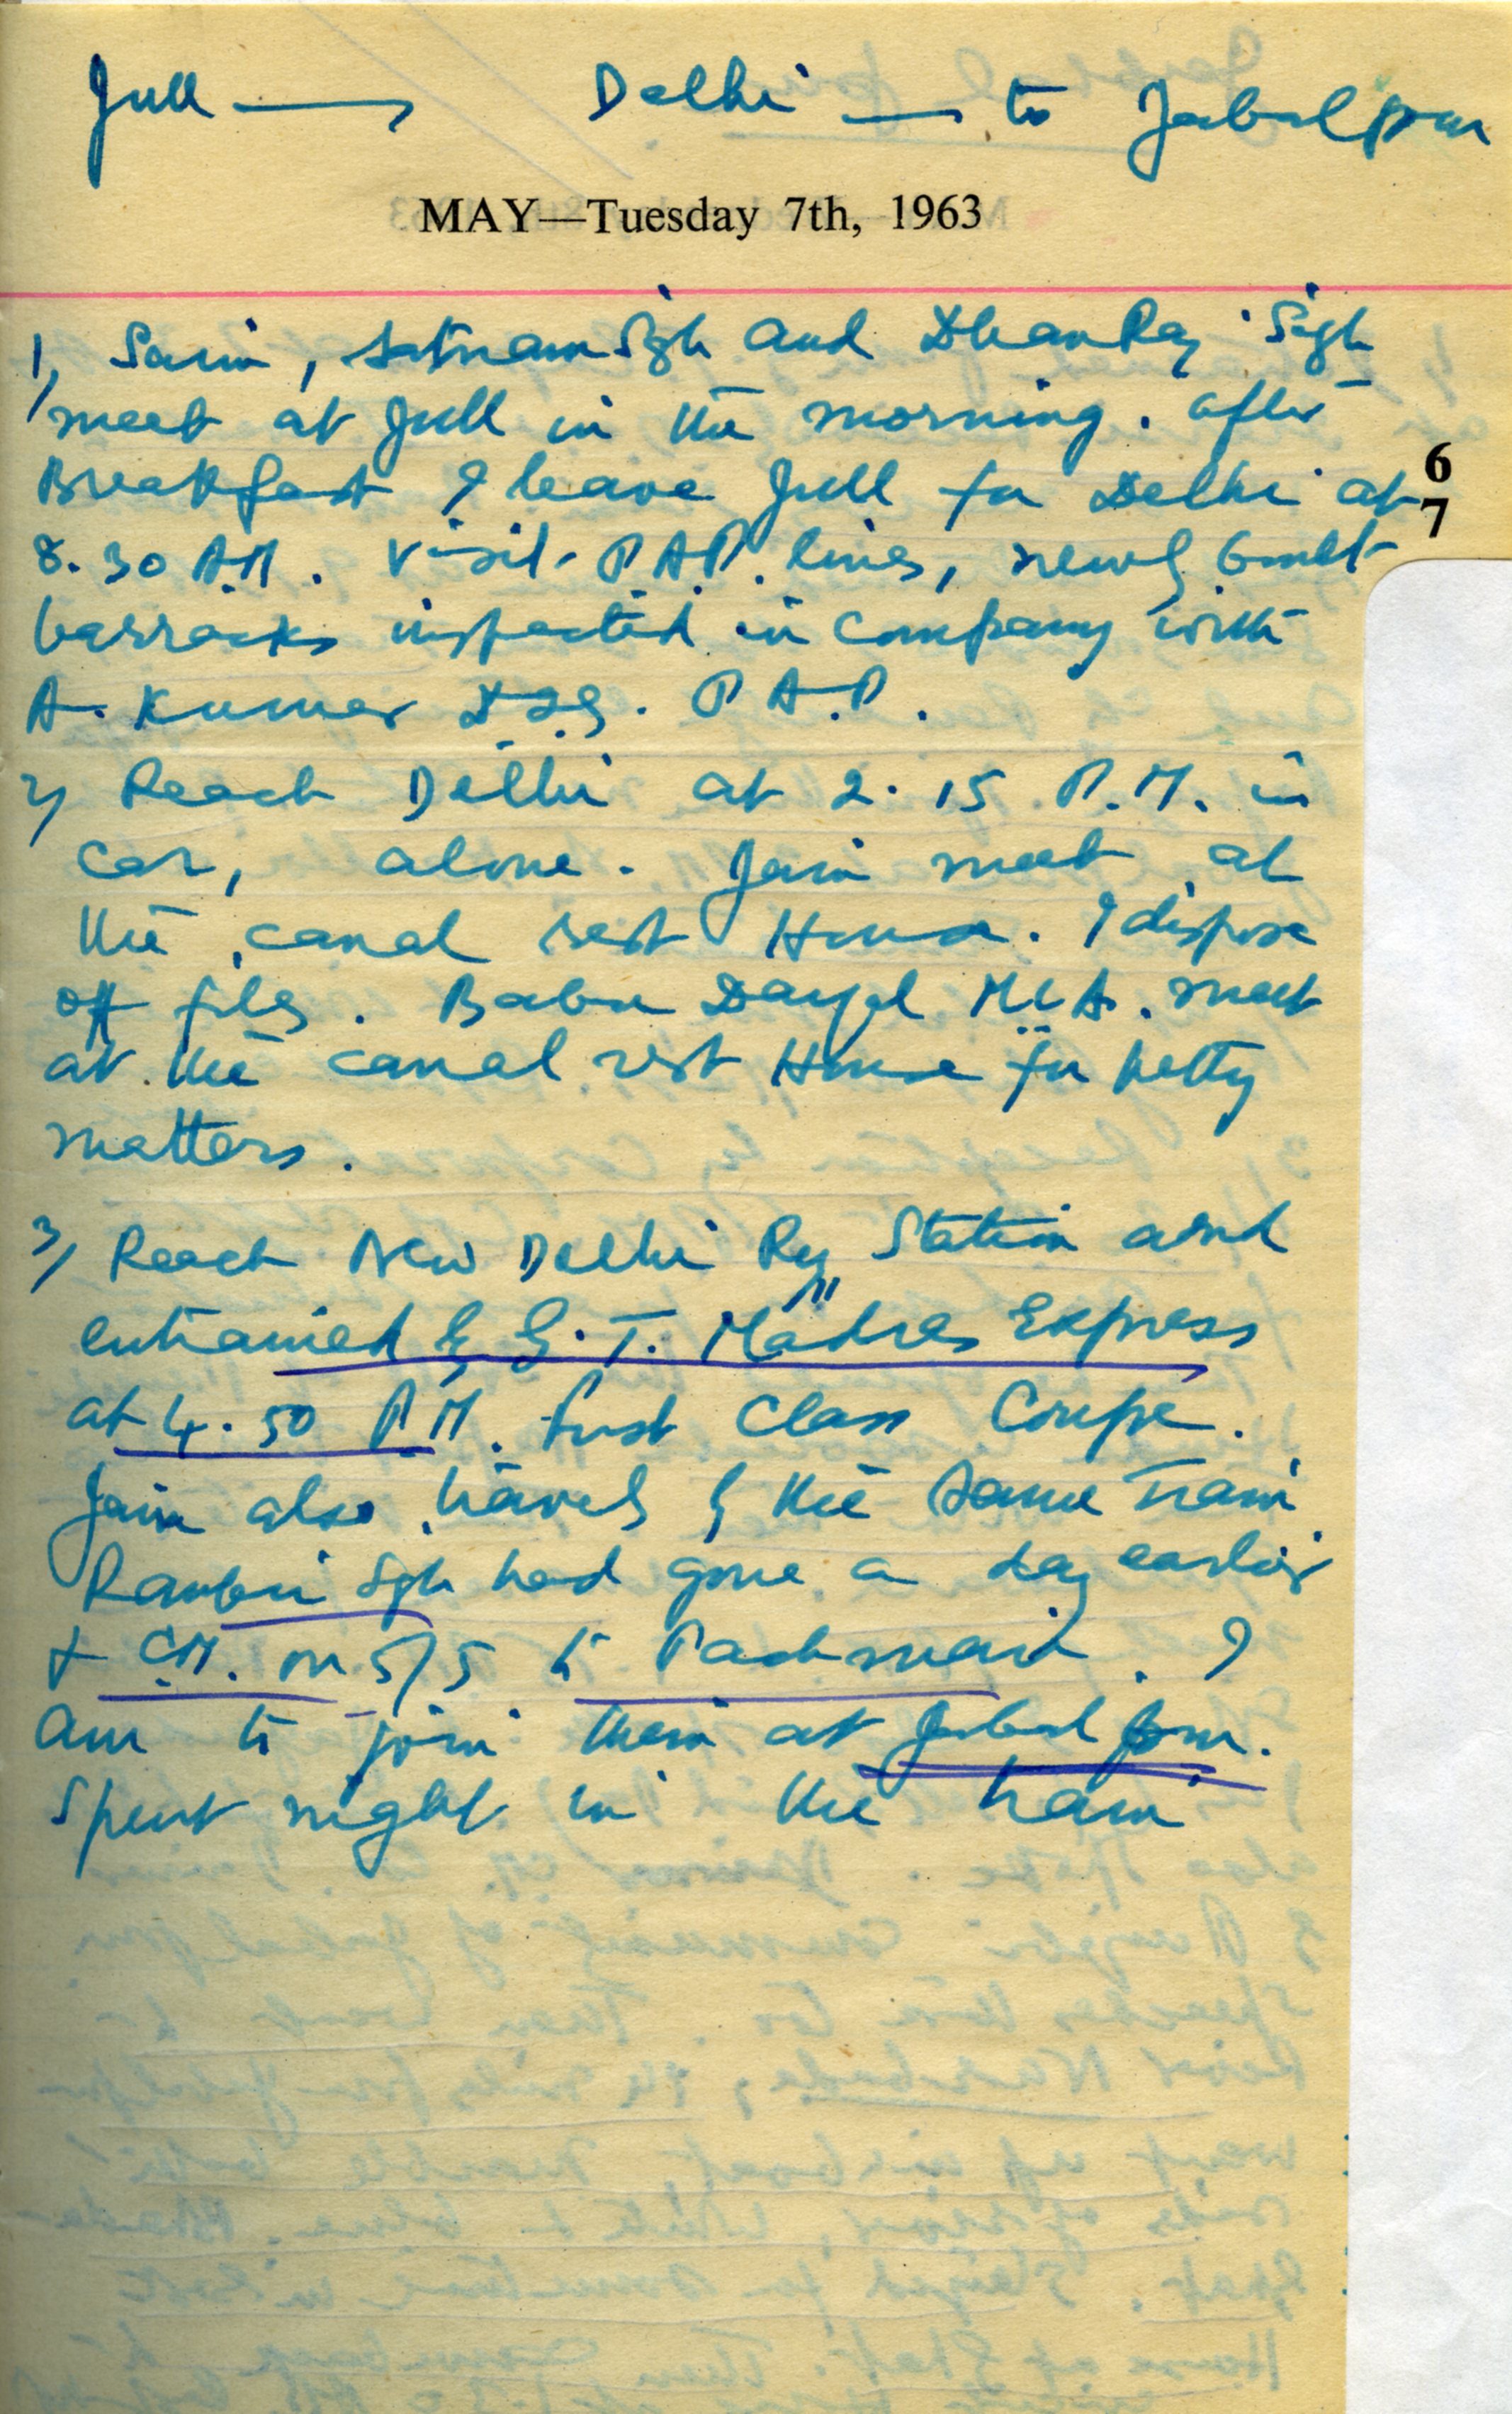 Jull → Delhi → to Jabalpur
MAY—Tuesday 7th, 1963
1, Sarin, Satnam Sgh and Dhan Raj Sigh
meet at Jull in the morning. after
Breakfast I leave Jull for Delhi at
8.30 A.M. Visit P.A.P. lines, newly built
barracks inspected in Company with
A. Kumar D.I.G. P.A.P.
6
7
2, Reach Delhi at 2.15 P.M. in
car, alone. Jain meet at
the canal rest House. I dispose
off files. Babu Dayal M.L.A. meet
at the canal rest House for petty
matters.
3, Reach New Delhi Ry Station and
entrained by G.T. "Madras Express
at 4.50 P.M. first Class Coupe.
Jain also travels by the same Train
Ranbir Sgh had gone a day earlier
+ C.M. on 5/5 to Pachmari. I
am to join them at Jabalpur.
Spent night in the train